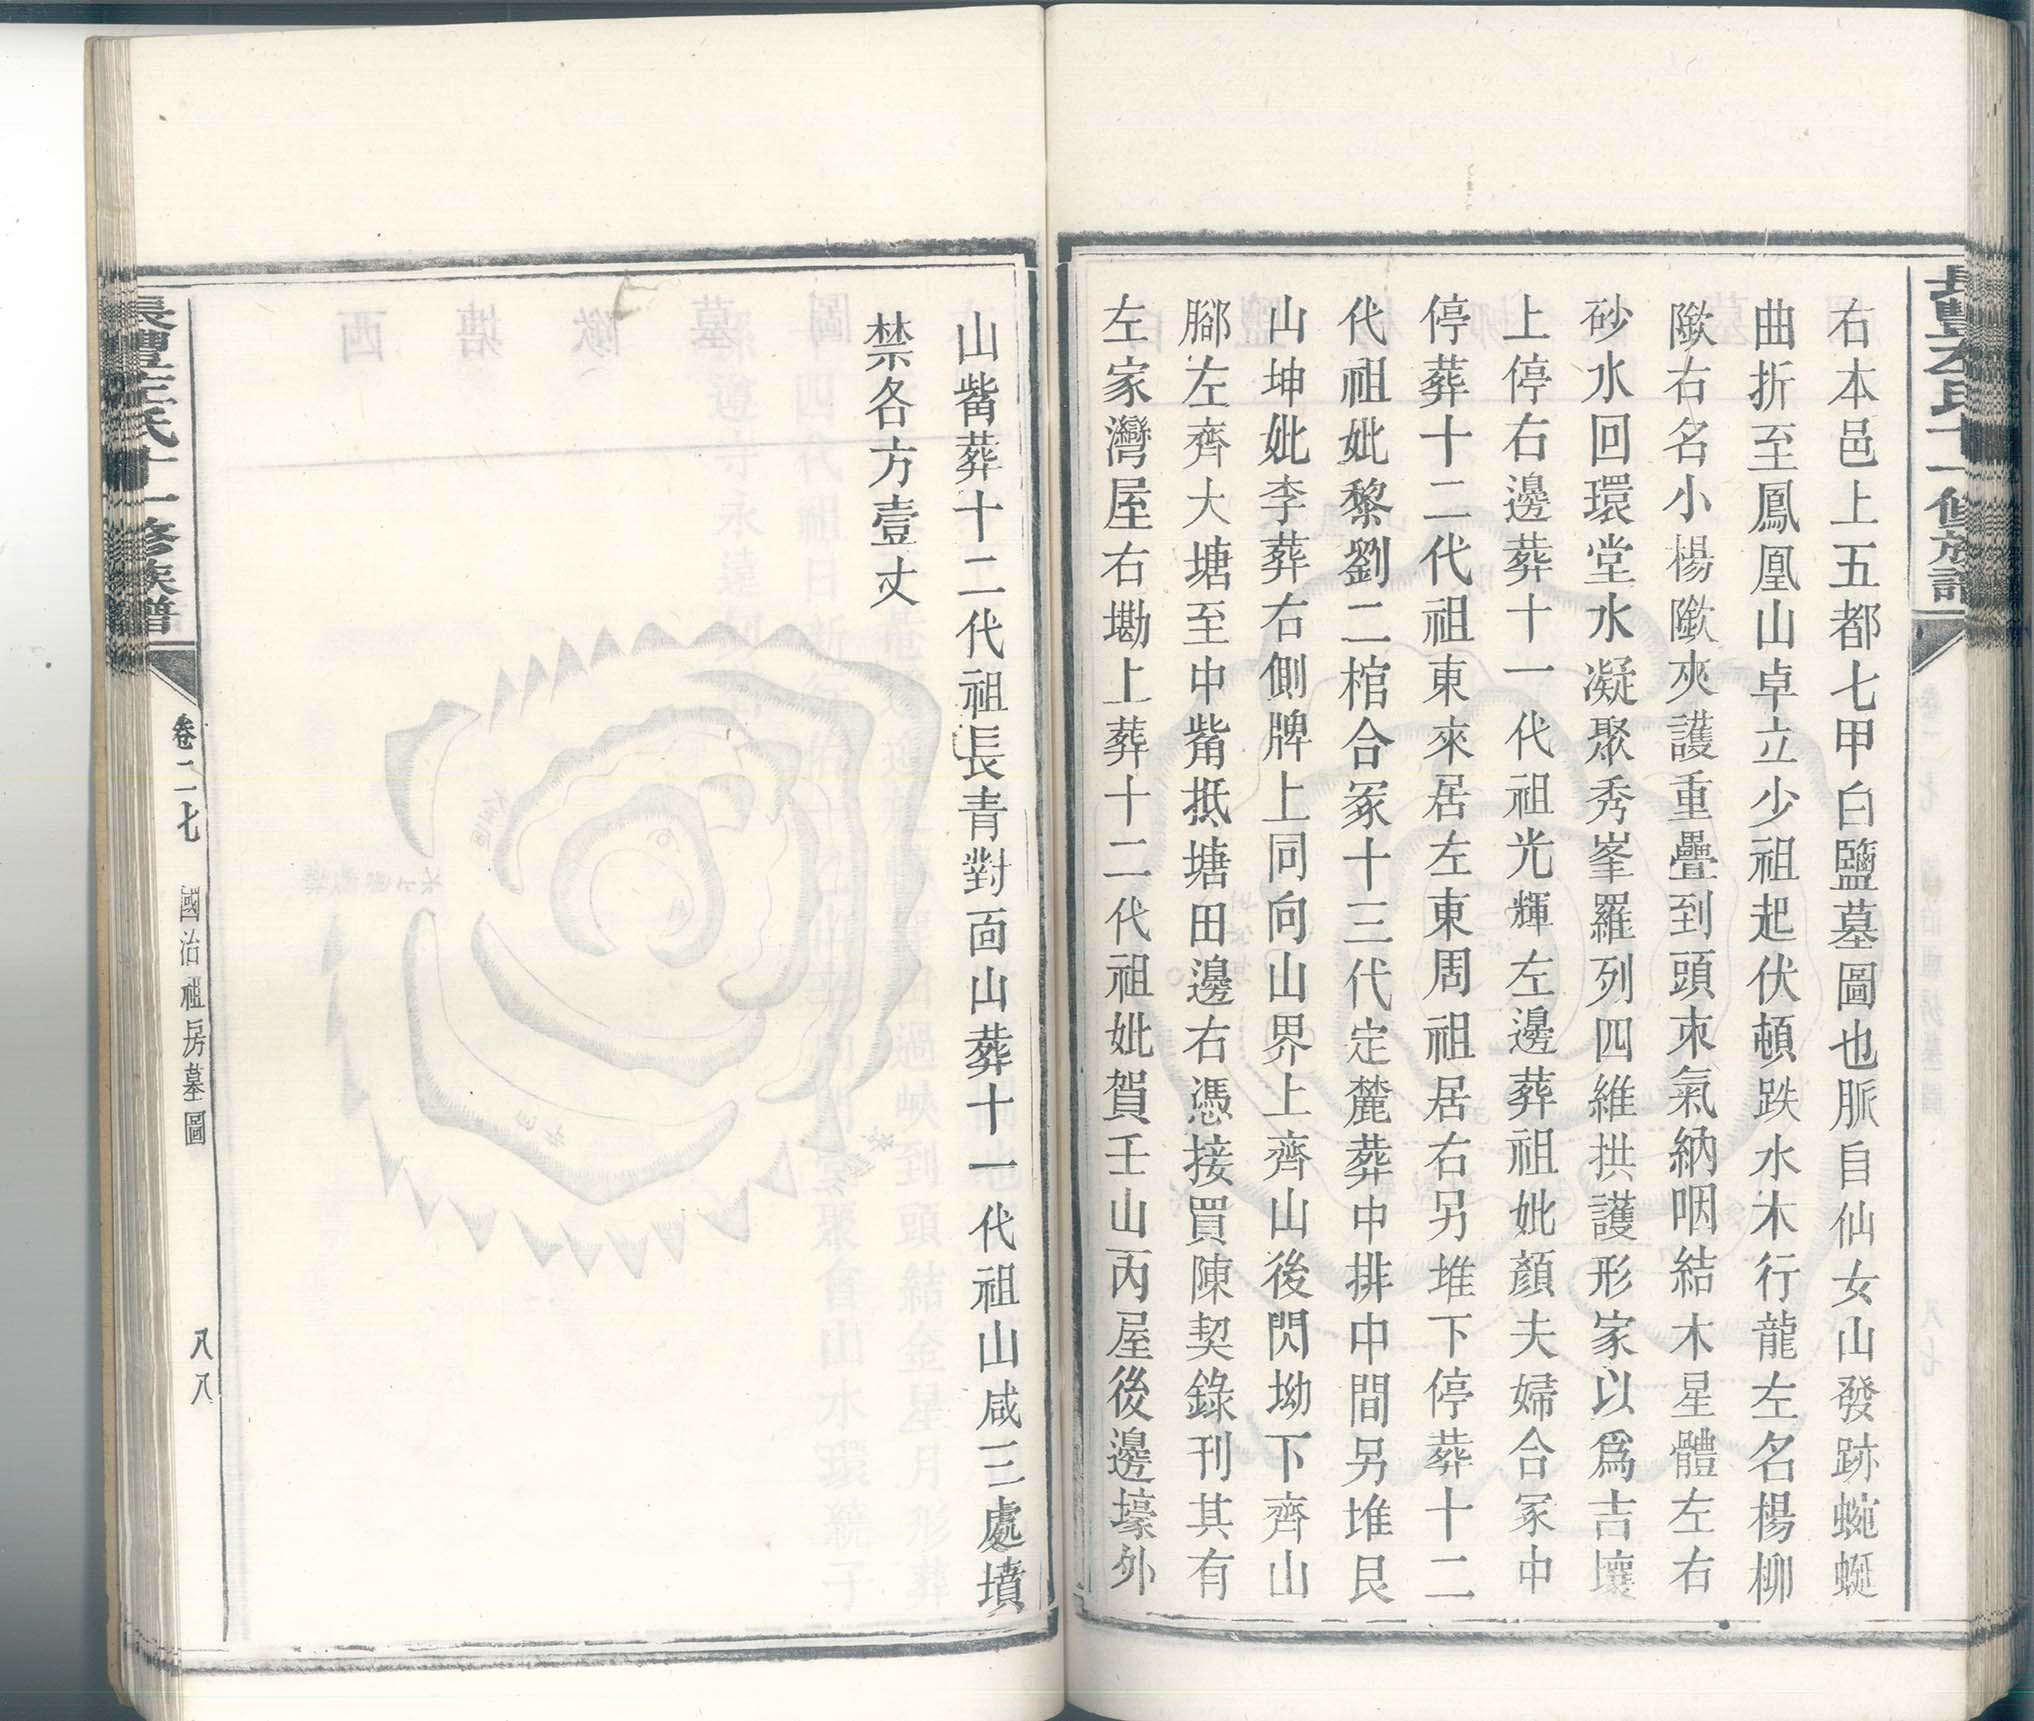 右本邑上五都七甲白鹽墓圖也脈自仙女山發跡蜿蜒
曲折至鳳凰山卓立少祖起伏頓跌水木行龍左名楊柳
隞右名小楊隞夾護重疊到頭束氣納咽結木星體左右
砂水回環堂水凝聚秀峯羅列四維拱護形家以爲吉壤
上停右邊葬十一代祖光輝左邊葬祖妣顏夫婦合冢中
停葬十二代祖東來居左東周祖居右另堆下停葬十二
代祖妣黎劉二棺合冢十三代定麓葬中排中間另堆艮
山坤妣李葬右側牌上同向山界上齊山後閃坳下齊山
腳左齊大塘至中觜抵塘田邊右憑接買陳契錄刊其有
左家灣屋右墈上葬十二代祖妣賀壬山丙屋後邊壕外
山觜葬十二代祖長青對面山葬十一代祖山咸三處墳
禁各方壹丈
左氏十一修族譜
卷二七
國治祖房墓圖
八八